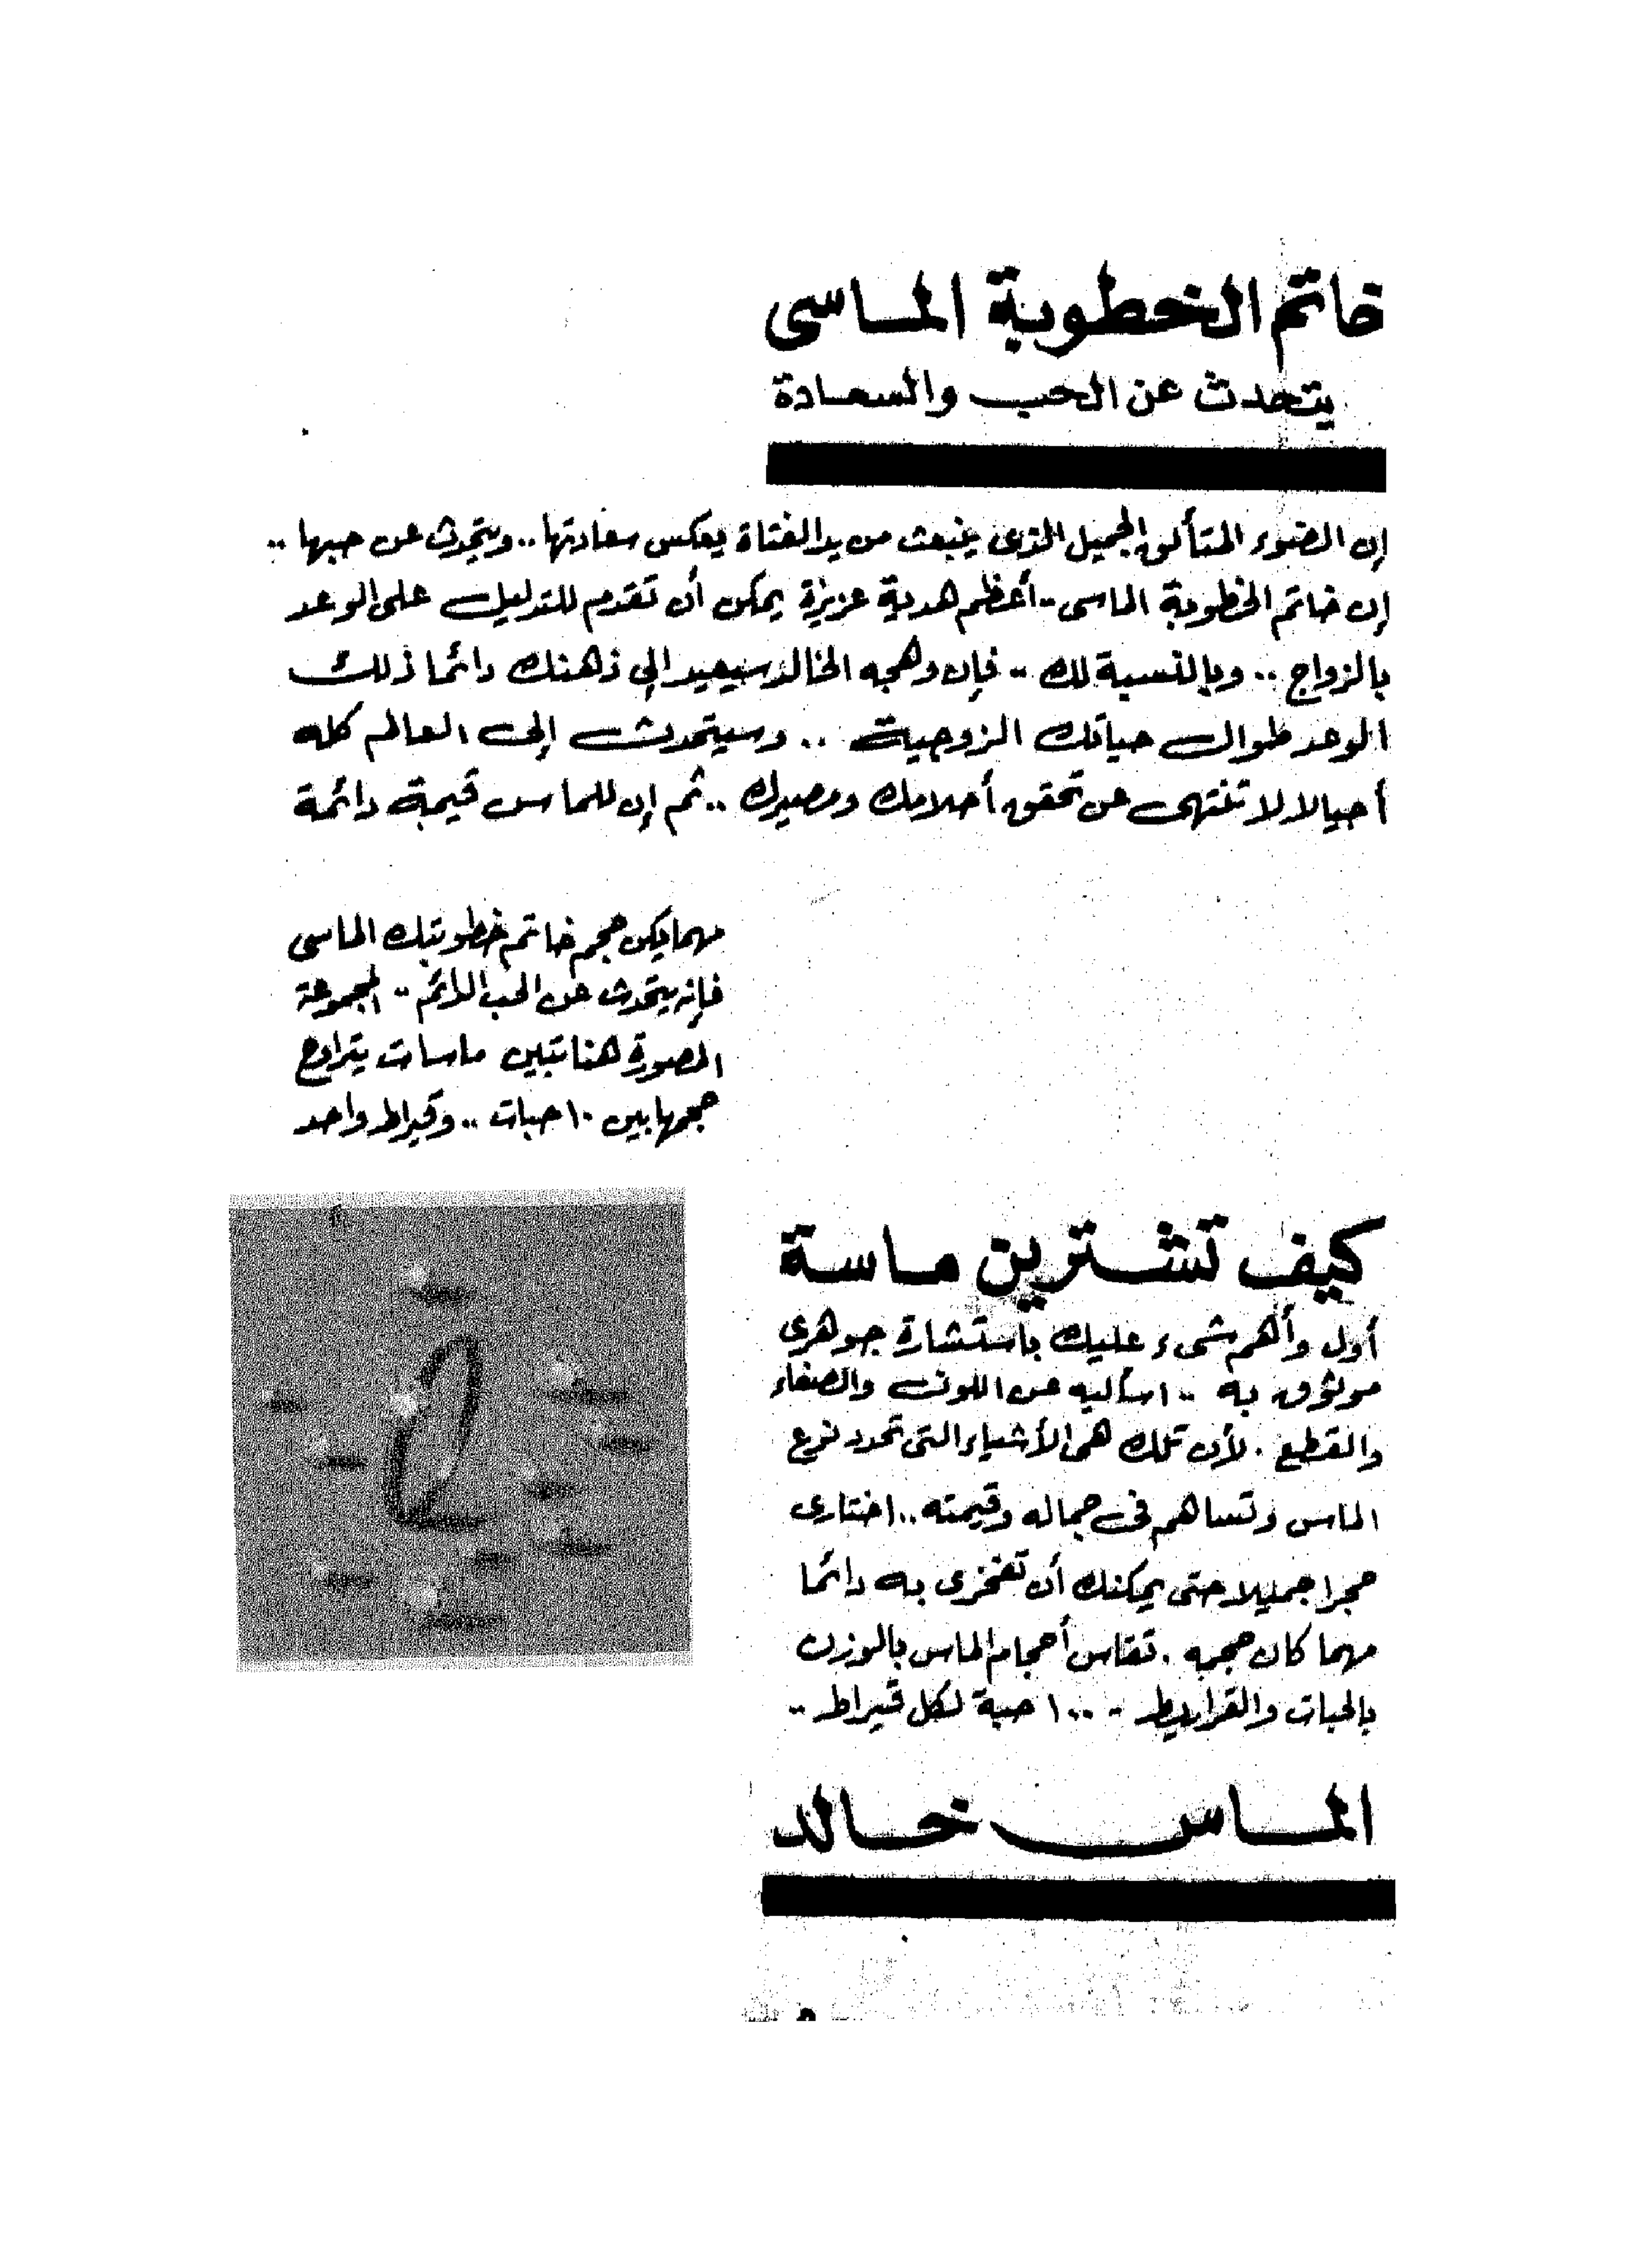 خاتم الخطوبة الماسى
يتحدث عن الحب والسعادة
إن الضوء المتألق الجميل الذى ينبعث من يد الفتاة يعكس سعادتها .. ويتحدث عن حبها ..
إن خاتم الخطوبة الماسى .. أعظم هدية عزيزة يمكن أن تقدم للتدليل على الوعد
بالزواج .. وبالنسبة لك .. فإن وهجه الخالد سيعيد إلى ذهنك دائما ذلك
الوعد طوال حياتك الزوجية .. وسيتحدث إلى العالم كله
أجيالا لا تنتهى عن تحقق أحلامك ومصيرك .. ثم إن للماس قيمة دائمة
مهما يكن حجم خاتم خطوبتك الماسى
فإنه يتحدث عن الحب الدائم .. المجموعة
المصورة هنا تبين ماسات يتراوح
حجمها بين ١٠ حبات .. وقيراط واحد
كيف تشترين ماسة
أول وأهم شىء عليك باستشارة جوهرى
موثوق به .. اسأليه عن اللون والصفاء
والقطع . لأن تلك هى الأشياء التى تحدد نوع
الماس وتساهم فى جماله وقيمته .. اختارى
حجرا جميلا حتى يمكنك أن تفخرى به دائما
مهما كان حجمه . تقاس أحجام الماس بالوزن
بالحبات والقراريط - ١٠٠ حبة لكل قيراط ..
الماس خالد